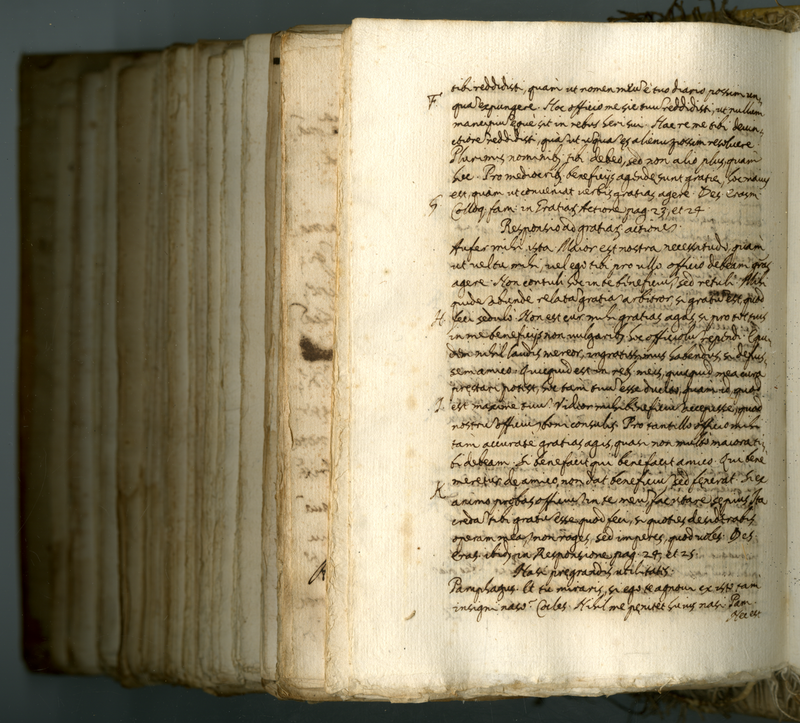 tibi reddidisti, quam ut nomen meu e tuo diario possim un,
F qua expungere. Hoc officio me sic tuu reddidisti, ut nullum
mancipiu eque sit in rebus heri sui. Hac re me tibi devin,
ctiore reddidisti, qua ut uqua es alienu possim resolvere.
Plurimis nominib, tibi debeo, sed non alio plus, quam
hoc. Pro mediocrib, beneficijs agende sunt gratie, hoc maius
est, quam ut conveniat verbis gratias agere. Des. Erasm.
G Colloq. fam: in Gratiar Actione pag. 23, et 24
Responsio ad gratiar actione.
Aufer mihi ista. Maior est nostra necessitudo, quam
ut vel tu mihi, vel ego tibi pro ullo officio debeam gras
agere. Non contuli hoc in te beneficiu, sed retuli. Mihi
quide abunde relata gratia arbitror, si gratu est, quod
H feci sedulo. Non est cur mihi gratias agas, si pro tot tuis
in me beneficijs non vulgarib, hoc officiolu rependi. Equi
dem nihil laudis mereor, ingratissimus habendus, si defuis,
sem amico. Quicquid est in reb, meis, quicquid mea cura
prestari potest, hoc tam tuu esse ducito, quam id quod
I est maxime tuu. Videor mihi beneficiu accepisse, quod
nostru officiu boni consulis. Pro tantillo officio mihi
tam accurate gratias agis, quasi non multo maiora ti,
bi debeam. Sibi benefacit qui benefacit amico. Qui bene
meretur de amico, non dat beneficiu, sed fenerat. Si ex
K animo probas officiu in te meu, fac utare sepius. Ita
creda tibi gratu esse quod feci, si quoties desiderabis
operam mea, non roges, sed imperes, quod voles. Des.
Eras. ibid, in Responsione pag. 24, et 25.
Nasi pregrandis utilitates.
Pamphagus. At tu miraris, si ego te agnovi ex isto tam
insigni naso? Cocles. Nihil me penitet huius nasi. Pam.
Nec est